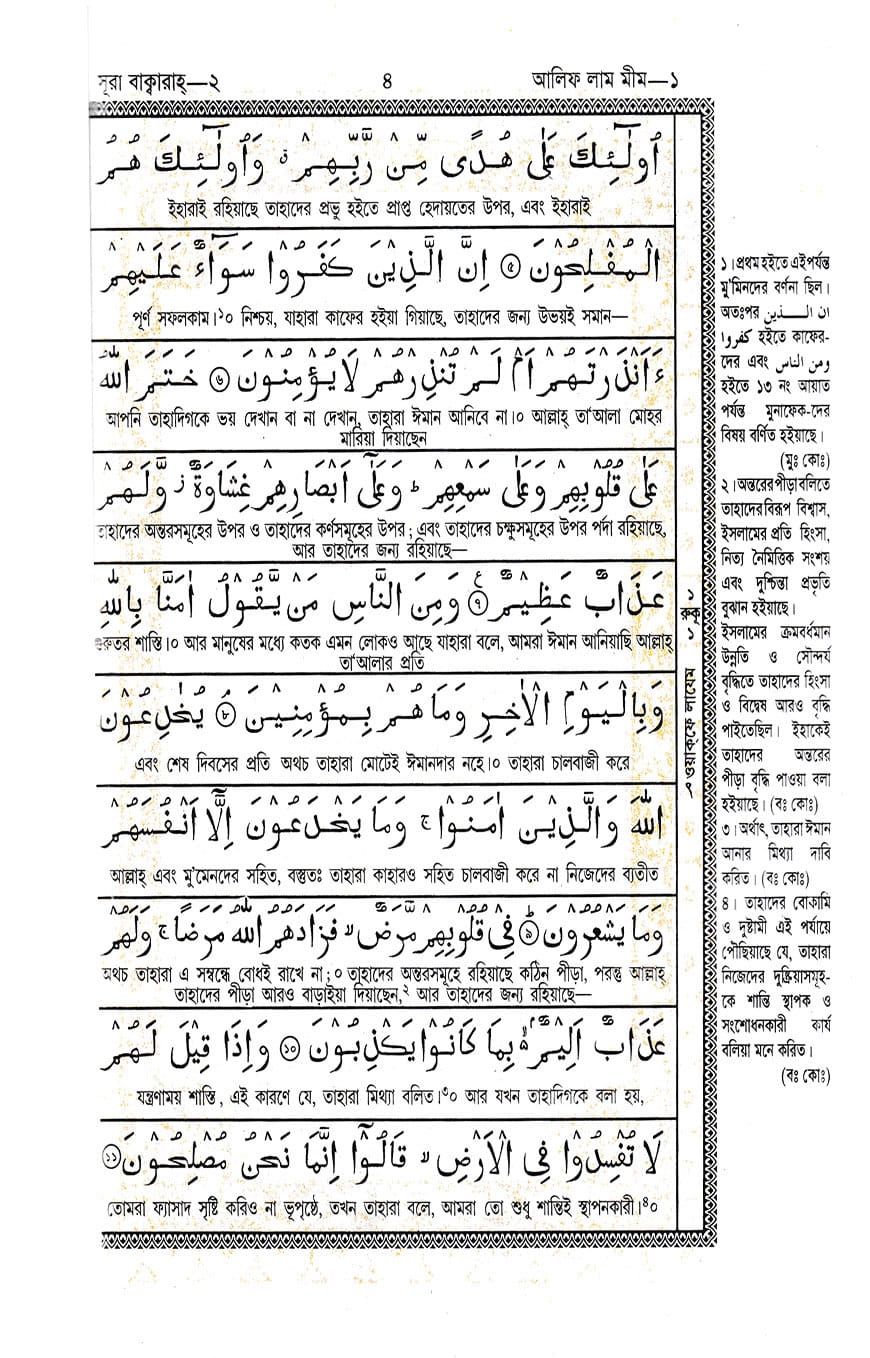 সূরা বাক্বারাহ্—২ ৪ আলিফ লাম মীম—১
اُولٰٓئِكَ عَلٰى هُدًى مِّنْ رَّبِّهِمْ ۙ وَاُولٰٓئِكَ هُمُ
ইহারাই রহিয়াছে তাহাদের প্রভু হইতে প্রাপ্ত হেদায়তের উপর, এবং ইহারাই
الْمُفْلِحُوْنَ ۝٥ اِنَّ الَّذِيْنَ كَفَرُوْا سَوَآءٌ عَلَيْهِمْ
পূর্ণ সফলকাম।১০ নিশ্চয়, যাহারা কাফের হইয়া গিয়াছে, তাহাদের জন্য উভয়ই সমান—
ءَاَنْذَرْتَهُمْ اَمْ لَمْ تُنْذِرْهُمْ لَا يُؤْمِنُوْنَ ۝٦ خَتَمَ اللّٰهُ
আপনি তাহাদিগকে ভয় দেখান বা না দেখান, তাহারা ঈমান আনিবে না।০ আল্লাহ্ তা'আলা মোহর
মারিয়া দিয়াছেন
عَلٰى قُلُوْبِهِمْ وَعَلٰى سَمْعِهِمْ ؕ وَعَلٰٓى اَبْصَارِهِمْ غِشَاوَةٌ ز وَّلَهُمْ
তাহাদের অন্তরসমূহের উপর ও তাহাদের কর্ণসমূহের উপর; এবং তাহাদের চক্ষুসমূহের উপর পর্দা রহিয়াছে,
আর তাহাদের জন্য রহিয়াছে—
عَذَابٌ عَظِيْمٌ ۝٧ ع وَمِنَ النَّاسِ مَنْ يَّقُوْلُ اٰمَنَّا بِاللّٰهِ
গুরুতর শাস্তি।০ আর মানুষের মধ্যে কতক এমন লোকও আছে যাহারা বলে, আমরা ঈমান আনিয়াছি আল্লাহ্
তা'আলার প্রতি
وَبِالْيَوْمِ الْاٰخِرِ وَمَا هُمْ بِمُؤْمِنِيْنَ ۝٨ يُخٰدِعُوْنَ
এবং শেষ দিবসের প্রতি অথচ তাহারা মোটেই ঈমানদার নহে।০ তাহারা চালবাজী করে
اللّٰهَ وَالَّذِيْنَ اٰمَنُوْا ۚ وَمَا يَخْدَعُوْنَ اِلَّآ اَنْفُسَهُمْ
আল্লাহ্ এবং মু'মেনদের সহিত, বস্তুতঃ তাহারা কাহারও সহিত চালবাজী করে না নিজেদের ব্যতীত
وَمَا يَشْعُرُوْنَ ۝٩ فِيْ قُلُوْبِهِمْ مَّرَضٌ ۙ فَزَادَهُمُ اللّٰهُ مَرَضًا ۚ وَلَهُمْ
অথচ তাহারা এ সম্বন্ধে বোধই রাখে না;০ তাহাদের অন্তরসমূহে রহিয়াছে কঠিন পীড়া, পরন্তু আল্লাহ্
তাহাদের পীড়া আরও বাড়াইয়া দিয়াছেন,২ আর তাহাদের জন্য রহিয়াছে—
عَذَابٌ اَلِيْمٌۢ بِمَا كَانُوْا يَكْذِبُوْنَ ۝١٠ وَاِذَا قِيْلَ لَهُمْ
যন্ত্রণাময় শাস্তি, এই কারণে যে, তাহারা মিথ্যা বলিত।৩০ আর যখন তাহাদিগকে বলা হয়,
لَا تُفْسِدُوْا فِى الْاَرْضِ ۙ قَالُوْٓا اِنَّمَا نَحْنُ مُصْلِحُوْنَ ۝١١
তোমরা ফ্যাসাদ সৃষ্টি করিও না ভূপৃষ্ঠে, তখন তাহারা বলে, আমরা তো শুধু শান্তিই স্থাপনকারী।৪০
১
রুকূ
ওয়াক্ফে লাযেম
১। প্রথম হইতে এইপর্যন্ত
মু'মিনদের বর্ণনা ছিল।
অতঃপর ان الـــذين
كفروا হইতে কাফের-
দের এবং ومن الناس
হইতে ১৩ নং আয়াত
পর্যন্ত মুনাফেক-দের
বিষয় বর্ণিত হইয়াছে।
(মুঃ কোঃ)
২। অন্তরের পীড়া বলিতে
তাহাদের বিরূপ বিশ্বাস,
ইসলামের প্রতি হিংসা,
নিত্য নৈমিত্তিক সংশয়
এবং দুশ্চিন্তা প্রভৃতি
বুঝান হইয়াছে।
ইসলামের ক্রমবর্ধমান
উন্নতি ও সৌন্দর্য
বৃদ্ধিতে তাহাদের হিংসা
ও বিদ্বেষ আরও বৃদ্ধি
পাইতেছিল। ইহাকেই
তাহাদের অন্তরের
পীড়া বৃদ্ধি পাওয়া বলা
হইয়াছে। (বঃ কোঃ)
৩। অর্থাৎ, তাহারা ঈমান
আনার মিথ্যা দাবি
করিত। (বঃ কোঃ)
৪। তাহাদের বোকামি
ও দুষ্টামী এই পর্যায়ে
পৌঁছিয়াছে যে, তাহারা
নিজেদের দুষ্ক্রিয়াসমূহ-
কে শান্তি স্থাপক ও
সংশোধনকারী কার্য
বলিয়া মনে করিত।
(বঃ কোঃ)